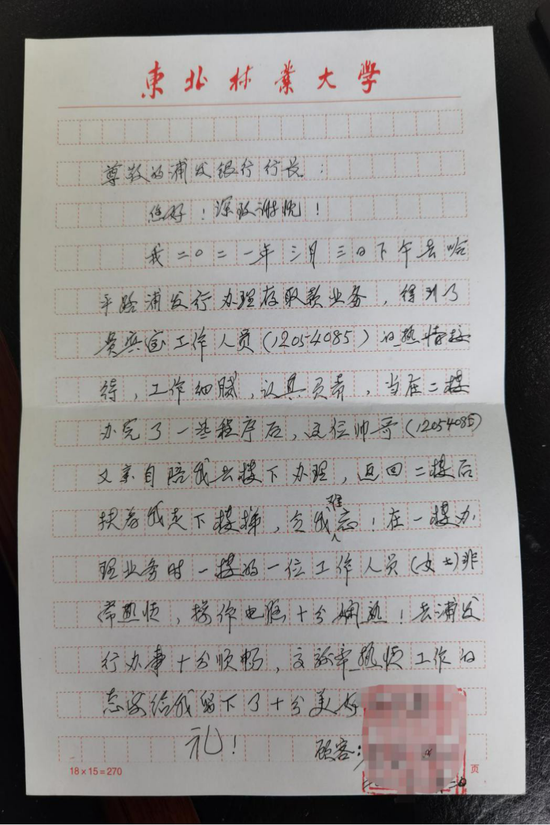 東北林業大学
尊敬的浦发银行行长：
您好！深致谢忱！
我二〇二一年三月三日下午去哈
平路浦发行办理存取款业务，得到了
贵宾室工作人员（12054085）的热情接
待，工作细腻，认真负责，当在二楼
办完了一些程序后，这位帅哥（12054085）
又亲自陪我去楼下办理，返回二楼后
扶着我走下楼梯，令我难忘！在一楼办
理业务时一楼的一位工作人员（女士）非
常热情，操作电脑十分娴熟！去浦发
行办事十分顺畅，热情工作的
态度给我留下了十分美好
礼！
顾客：
18×15=270
页